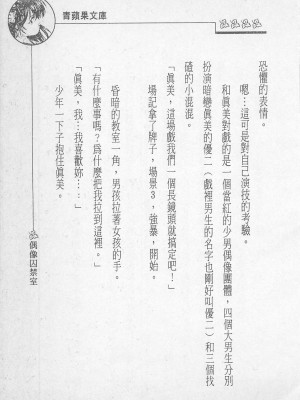 青蘋果文庫
恐懼的表情。
嗯…這可是對自己演技的考驗。
和眞美對戲的是一個當紅的少男偶像團體，四個大男生分別
扮演暗戀眞美的優二（戲裡男生的名字也剛好叫優二）和三個找
碴的小混混。
「眞美，這場戲我們一個長鏡頭就搞定吧！」
場記拿了牌子，場景3，強暴，開始。
昏暗的教室一角，男孩拉著女孩的手。
「有什麼事嗎？爲什麼把我拉到這裡。」
「眞美，我…我喜歡妳……」
少年一下子抱住眞美。
偶像囚禁室